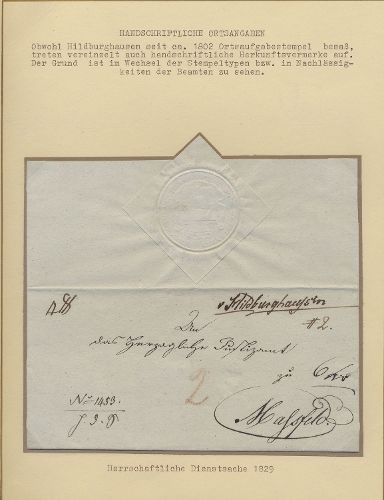 HANDSCHRIFTLICHE ORTSANGABEN
Obwohl Hildburghausen seit ca. 1802 Ortsaufgabestempel besaß,
treten vereinzelt auch handschriftliche Herkunftsvermerke auf.
Der Grund ist im Wechsel der Stempeltypen bzw. in Nachlässig-
keiten der Beamten zu sehen.
v Hildburghausen
#2.
An
das Herzogliche Justizamt
zu
2
No 1453.
Maßfeld.
Herrschaftliche Dienstsache 1829